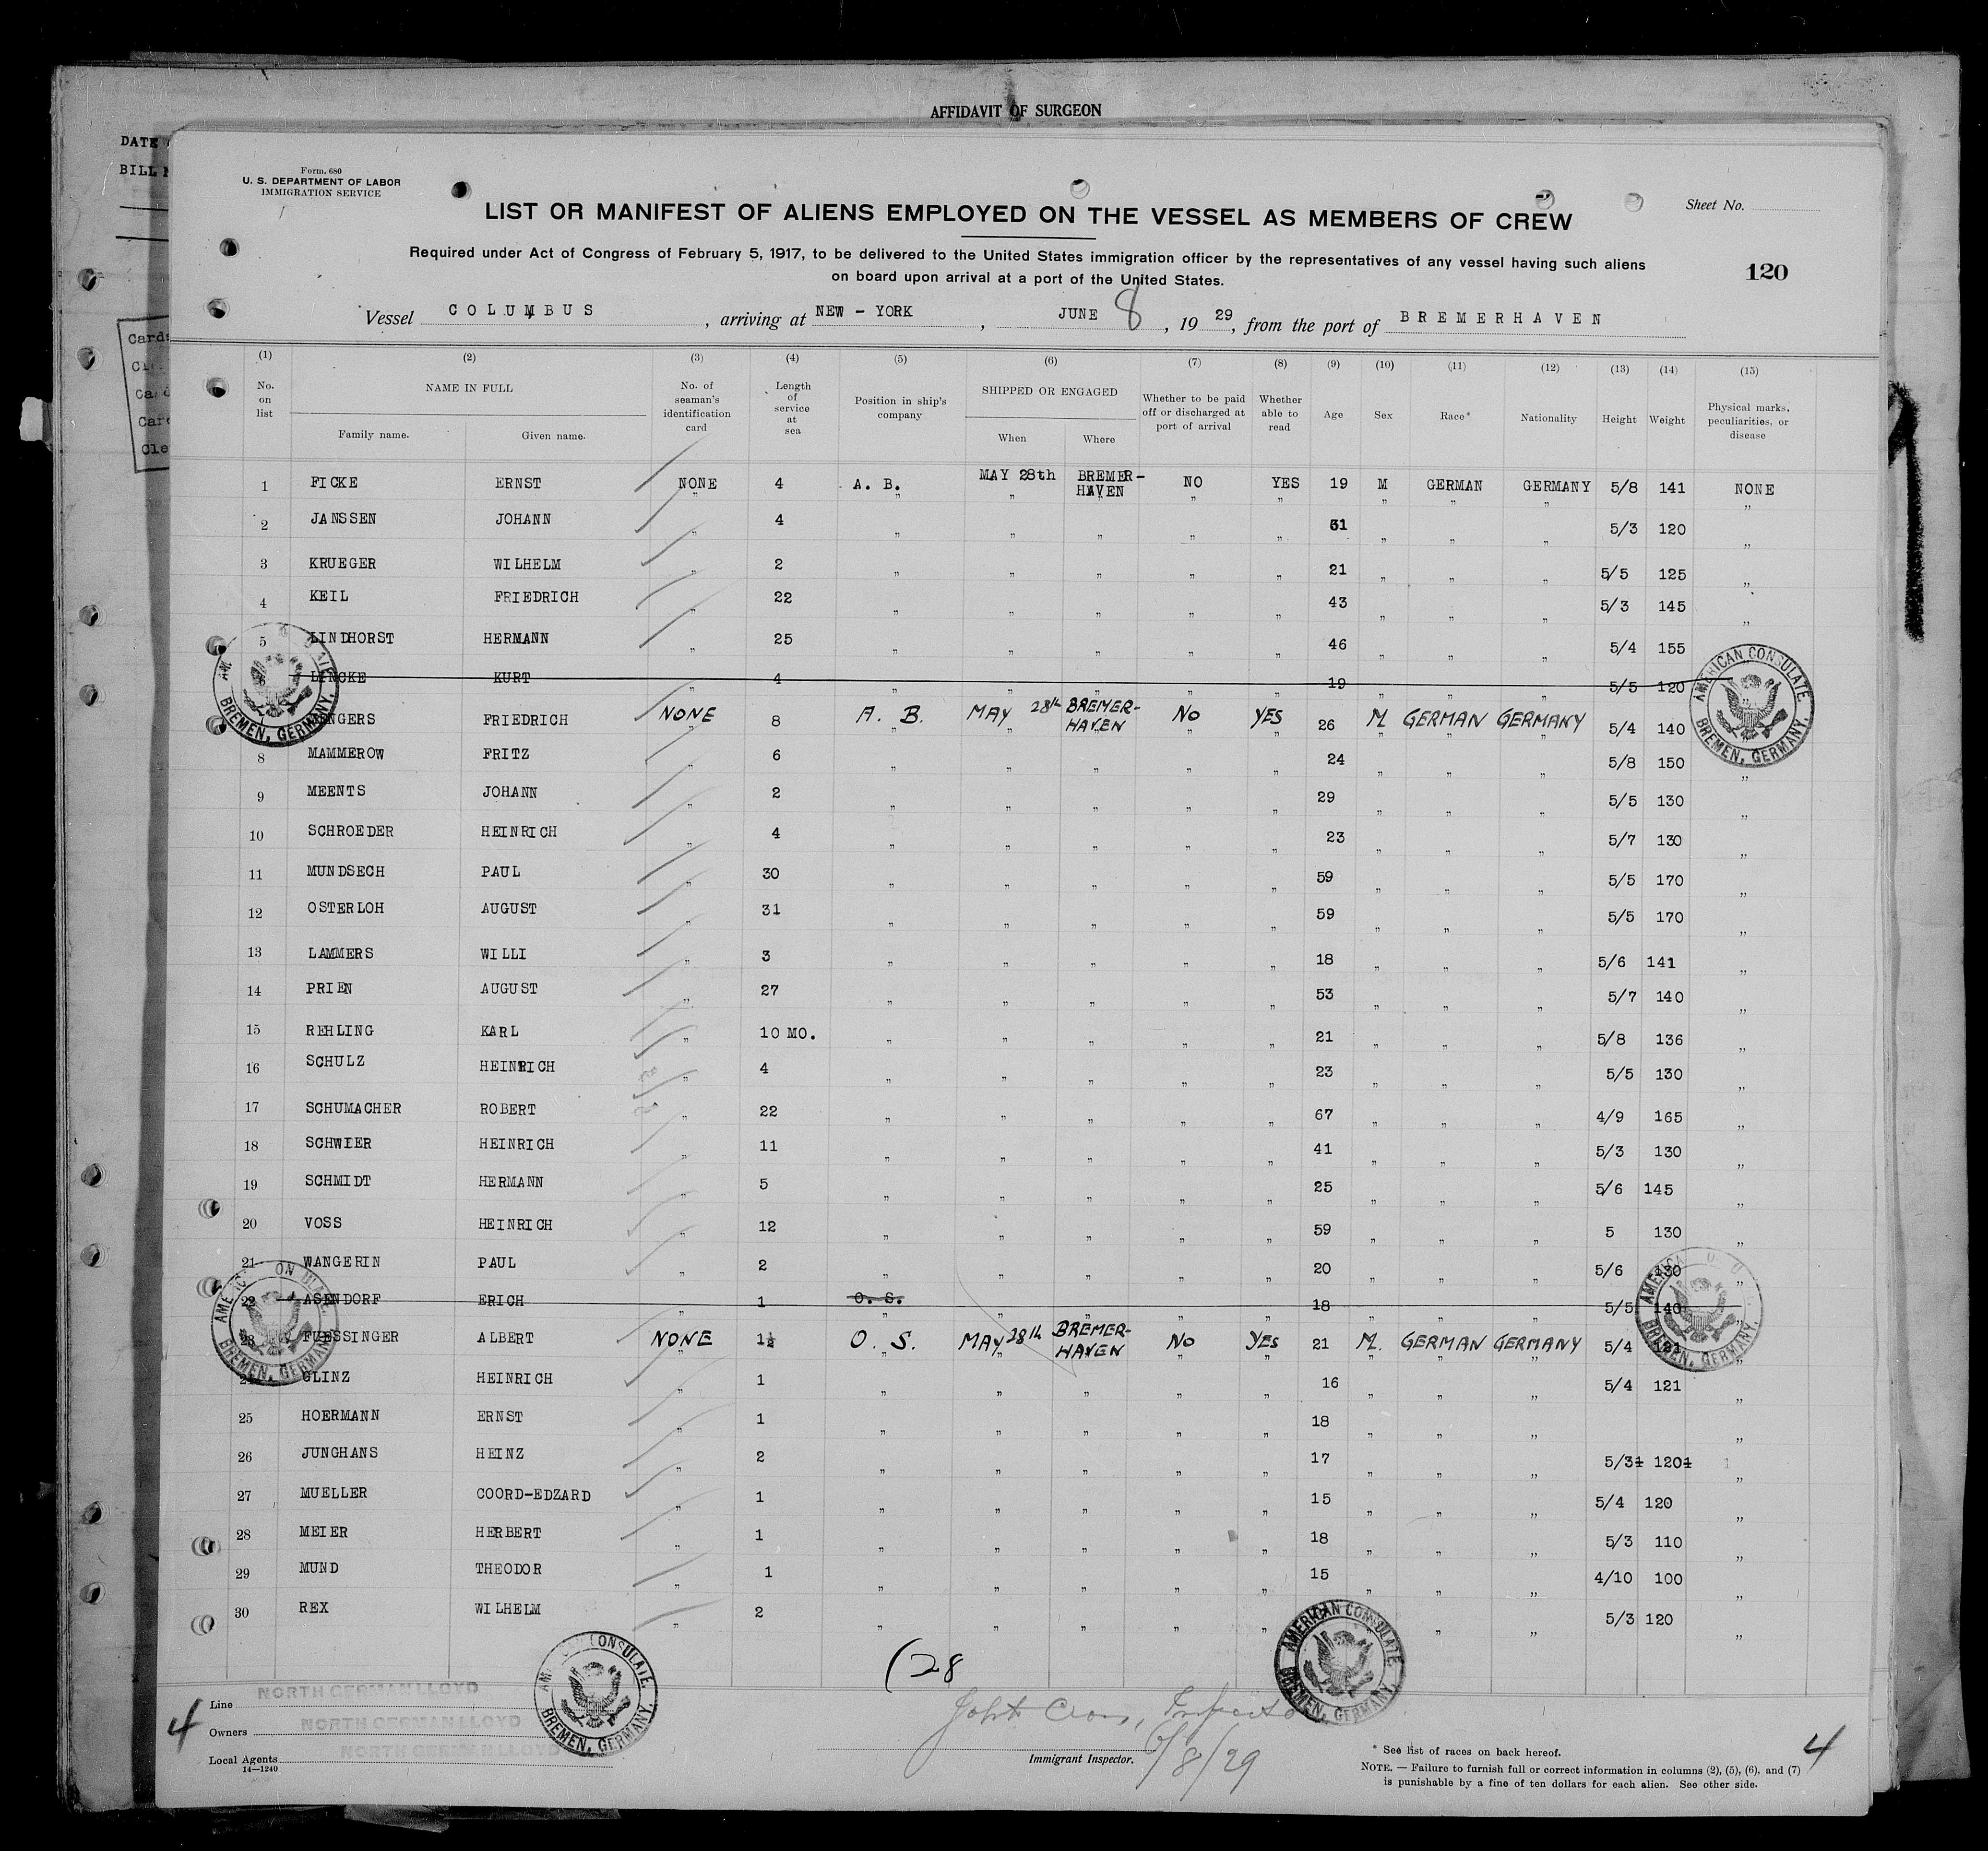 AFFIDAVIT OF SURGEON
DATE
BILL
Form. 680
U. S. DEPARTMENT OF LABOR
IMMIGRATION SERVICE
LIST OR MANIFEST OF ALIENS EMPLOYED ON THE VESSEL AS MEMBERS OF CREW
Sheet No.
Required under Act of Congress of February 5, 1917, to be delivered to the United States immigration officer by the representatives of any vessel having such aliens
on board upon arrival at a port of the United States.
120
Vessel COLUMBUS, arriving at NEW - YORK, JUNE 8, 1929, from the port of BREMERHAVEN
(1) (2) (3) (4) (5) (6) (7) (8) (9) (10) (11) (12) (13) (14) (15)
No. on list
NAME IN FULL
Family name. Given name.
No. of seaman's identification card
Length of service at sea
Position in ship's company
SHIPPED OR ENGAGED
When Where
Whether to be paid off or discharged at port of arrival
Whether able to read
Age Sex Race* Nationality Height Weight
Physical marks, peculiarities, or disease
1 FICKE ERNST NONE 4 A. B. MAY 28th BREMER-HAVEN NO YES 19 M GERMAN GERMANY 5/8 141 NONE
2 JANSSEN JOHANN " 4 " " " " " " " " " 5/3 120 "
3 KRUEGER WILHELM " 2 " " " " " 21 " " " 5/5 125 "
4 KEIL FRIEDRICH " 22 " " " " " 43 " " " 5/3 145 "
5 LINDHORST HERMANN " 25 " " " " " 46 " " " 5/4 155
LINCKE KURT " 4 " " " " " 19 " " " 5/5 120
FRIEDRICH NONE 8 A. B. MAY 28th BREMER-HAVEN NO YES 26 M GERMAN GERMANY 5/4 140
8 MAMMEROW FRITZ " 6 " " " " " 24 " " " 5/8 150 "
9 MEENTS JOHANN " 2 " " " " " 29 " " " 5/5 130 "
10 SCHROEDER HEINRICH " 4 " " " " " 23 " " " 5/7 130 "
11 MUNDSECH PAUL " 30 " " " " " 59 " " " 5/5 170 "
12 OSTERLOH AUGUST " 31 " " " " " 59 " " " 5/5 170 "
13 LAMMERS WILLI " 3 " " " " " 18 " " " 5/6 141 "
14 PRIEN AUGUST " 27 " " " " " 53 " " " 5/7 140 "
15 REHLING KARL " 10 MO. " " " " " 21 " " " 5/8 136 "
16 SCHULZ HEINRICH " 4 " " " " " 23 " " " 5/5 130 "
17 SCHUMACHER ROBERT " 22 " " " " " 67 " " " 4/9 165 "
18 SCHWIER HEINRICH " 11 " " " " " 41 " " " 5/3 130 "
19 SCHMIDT HERMANN " 5 " " " " " 25 " " " 5/6 145 "
20 VOSS HEINRICH " 12 " " " " " 59 " " " 5 130 "
21 WANGERIN PAUL " 2 " " " " " 20 " " " 5/6 130 "
22 ASENDORF ERICH " 1 O. S. " " " " 18 " " " 5/5 140 "
23 FUESSINGER ALBERT NONE 1½ O. S. MAY 28th BREMER-HAVEN NO YES 21 M. GERMAN GERMANY 5/4 121 "
24 GLINZ HEINRICH " 1 " " " " " 16 " " " 5/4 121 "
25 HOERMANN ERNST " 1 " " " " " 18 " " " "
26 JUNGHANS HEINZ " 2 " " " " " 17 " " " 5/31 1201 "
27 MUELLER COORD-EDZARD " 1 " " " " " 15 " " " 5/4 120 "
28 MEIER HERBERT " 1 " " " " " 18 " " " 5/3 110 "
29 MUND THEODOR " 1 " " " " " 15 " " " 4/10 100 "
30 REX WILHELM " 2 " " " " " " " 5/3 120 "
AMERICAN CONSULATE
BREMEN, GERMANY.
(28
Line NORTH GERMAN LLOYD
Owners NORTH GERMAN LLOYD
Local Agents NORTH GERMAN LLOYD
14—1240
4
6/8/29
Immigrant Inspector.
* See list of races on back hereof.
NOTE. — Failure to furnish full or correct information in columns (2), (5), (6), and (7)
is punishable by a fine of ten dollars for each alien. See other side.
4